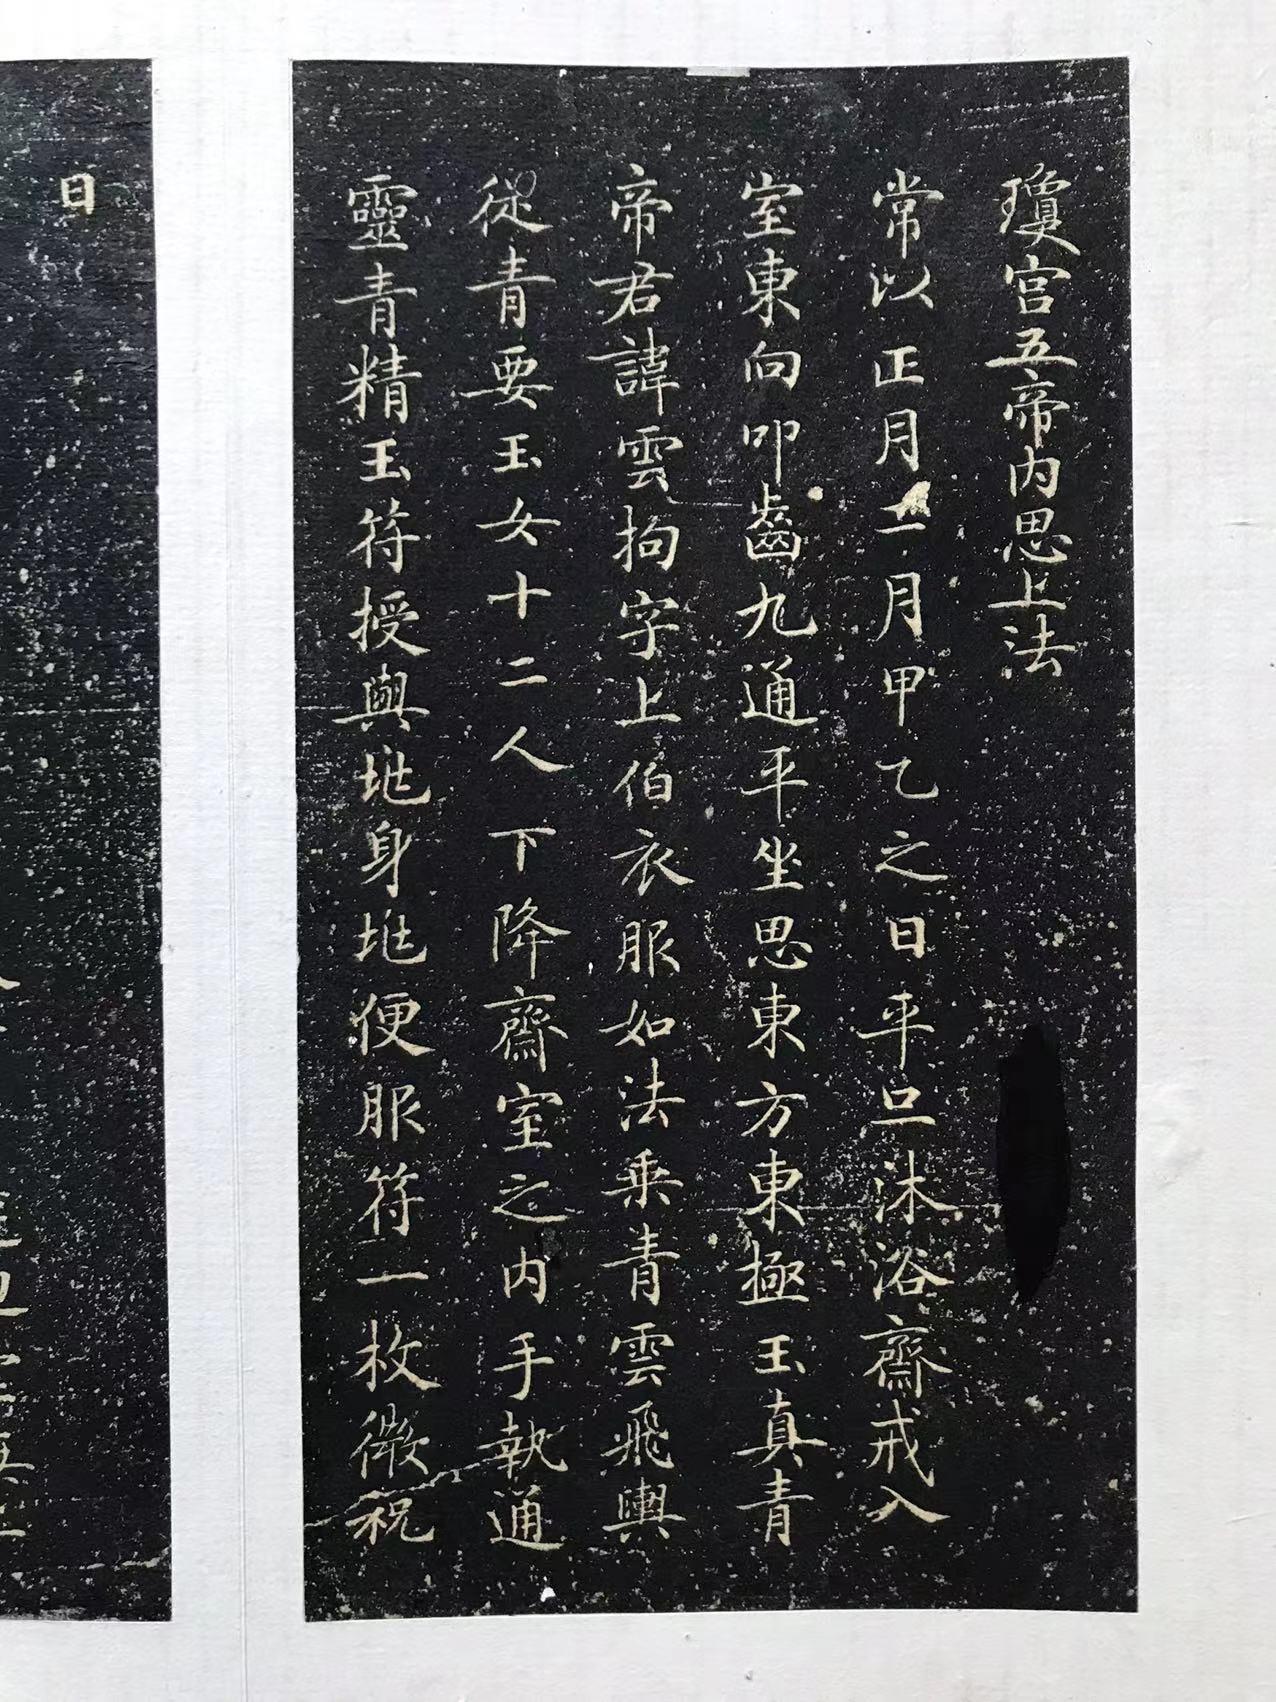 瓊宮五帝內思上法
常以正月二月甲乙之日平旦沐浴齋戒入
室東向叩齒九通平坐思東方東極玉真青
帝君諱雲拘字上伯衣服如法乘青雲飛輿
從青要玉女十二人下降齋室之內手執通
靈青精玉符授與兆身兆便服符一枚微祝
日